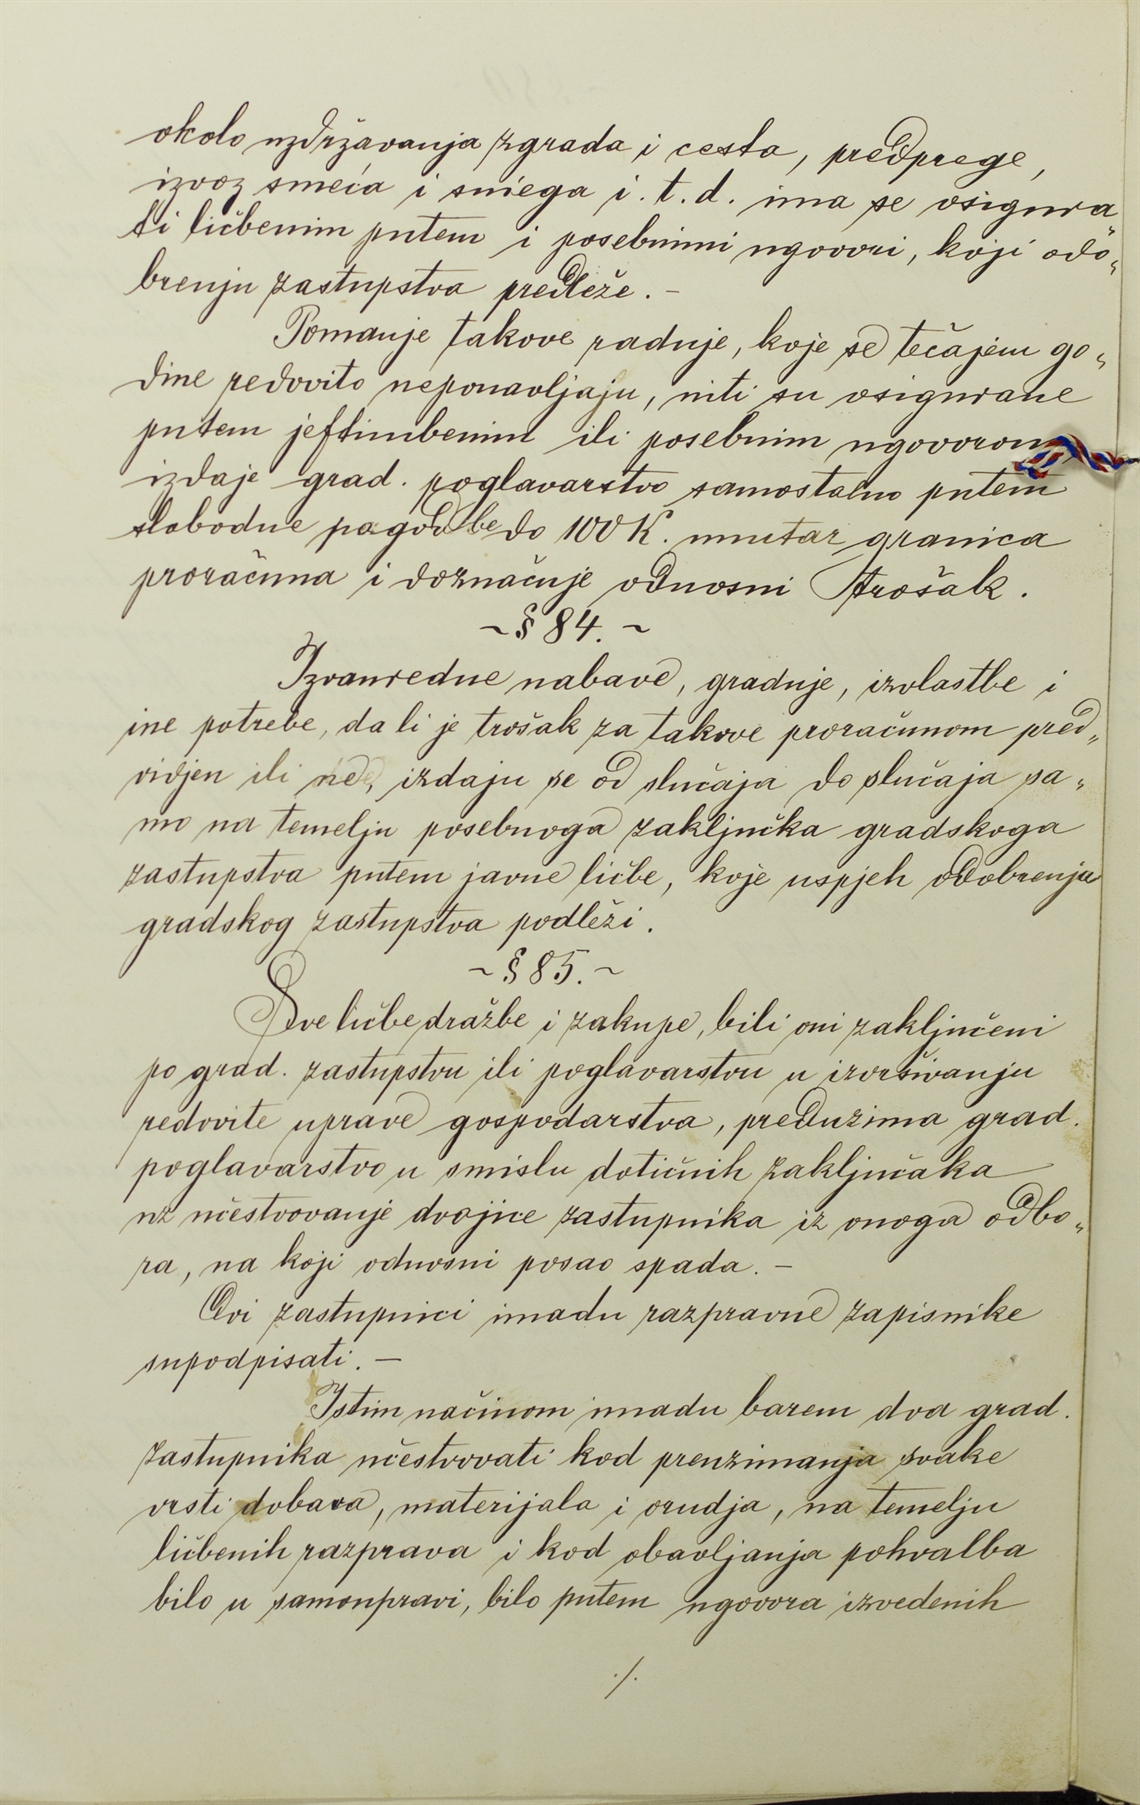 okolo uzdržavanja zgrada i cesta, predprege,
izvoz smeća i sniega i. t. d. ima se osigura
ti ličbenim putem i posebnimi ugovori, koji odo„
brenju zastupstva predleže. –
Pomanje takove radnje, koje se tečajem go„
dine redovito neponavljaju, niti su osigurane
putem jeftimbenim ili posebnim ugovorom
izdaje grad. poglavarstvo samostalno putem
slobodne pogodbe do 100 K. unutar granica
proračuna i doznačuje odnosni trošak.
~ § 84. ~
Izvanredne nabave, gradnje, izvlastbe i
ine potrebe, da li je trošak za takove proračunom pred„
vidjen ili ne, izdaju se od slučaja do slučaja sa„
mo na temelju posebnoga zaključka gradskoga
zastupstva putem javne ličbe, koje uspjeh odobrenju
gradskog zastupstva podleži.
~ § 85. ~
Sve ličbe dražbe i zakupe, bili oni zaključeni
po grad. zastupstvu ili poglavarstvu u izvršivanju
redovite uprave gospodarstva, preduzima grad.
poglavarstvo u smislu dotičnih zaključaka
uz učestvovanje dvojice zastupnika iz onoga odbo„
ra, na koji odnosni posao spada. –
Ovi zastupnici imadu razpravne zapisnike
supodpisati. –
Istim načinom imadu barem dva grad.
zastupnika učestvovati kod preuzimanja svake
vrsti dobava, materijala i orudja, na temelju
ličbenih razprava i kod obavljanja pohvalba
bilo u samoupravi, bilo putem ugovora izvedenih
./.